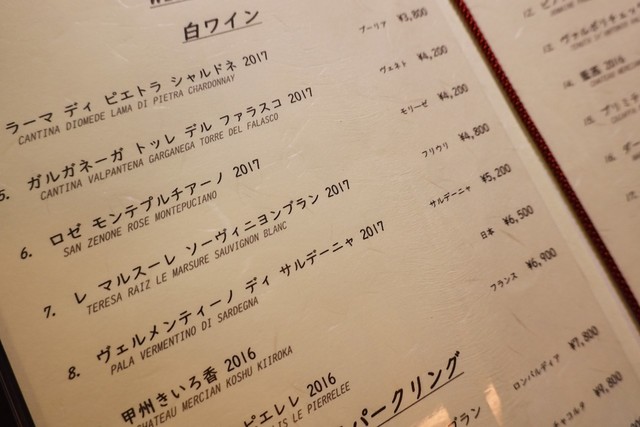 白ワイン
ラーマ ディ ピエトラ シャルドネ 2017 プーリア ¥3,800
CANTINA DIOMEDE LAMA DI PIETRA CHARDONNAY
5. ガルガネーガ トッレ デル ファラスコ 2017 ヴェネト ¥4,200
CANTINA VALPANTENA GARGANEGA TORRE DEL FALASCO
6. ロゼ モンテプルチアーノ 2017 モリーゼ ¥4,200
SAN ZENONE ROSE MONTEPUCIANO
7. レ マルスーレ ソーヴィニヨンブラン 2017 フリウリ ¥4,800
TERESA RAIZ LE MARSURE SAUVIGNON BLANC
8. ヴェルメンティーノ ディ サルデーニャ 2017 サルデーニャ ¥5,200
PALA VERMENTINO DI SARDEGNA
甲州きいろ香 2016 日本 ¥6,500
CHATEAU MERCIAN KOSHU KIIROKA
ピエレレ 2016 フランス ¥6,900
LIS LE PIERRELEE
パークリング
ブラン ロンバルディア ¥7,800
チャコルタ ¥9,800